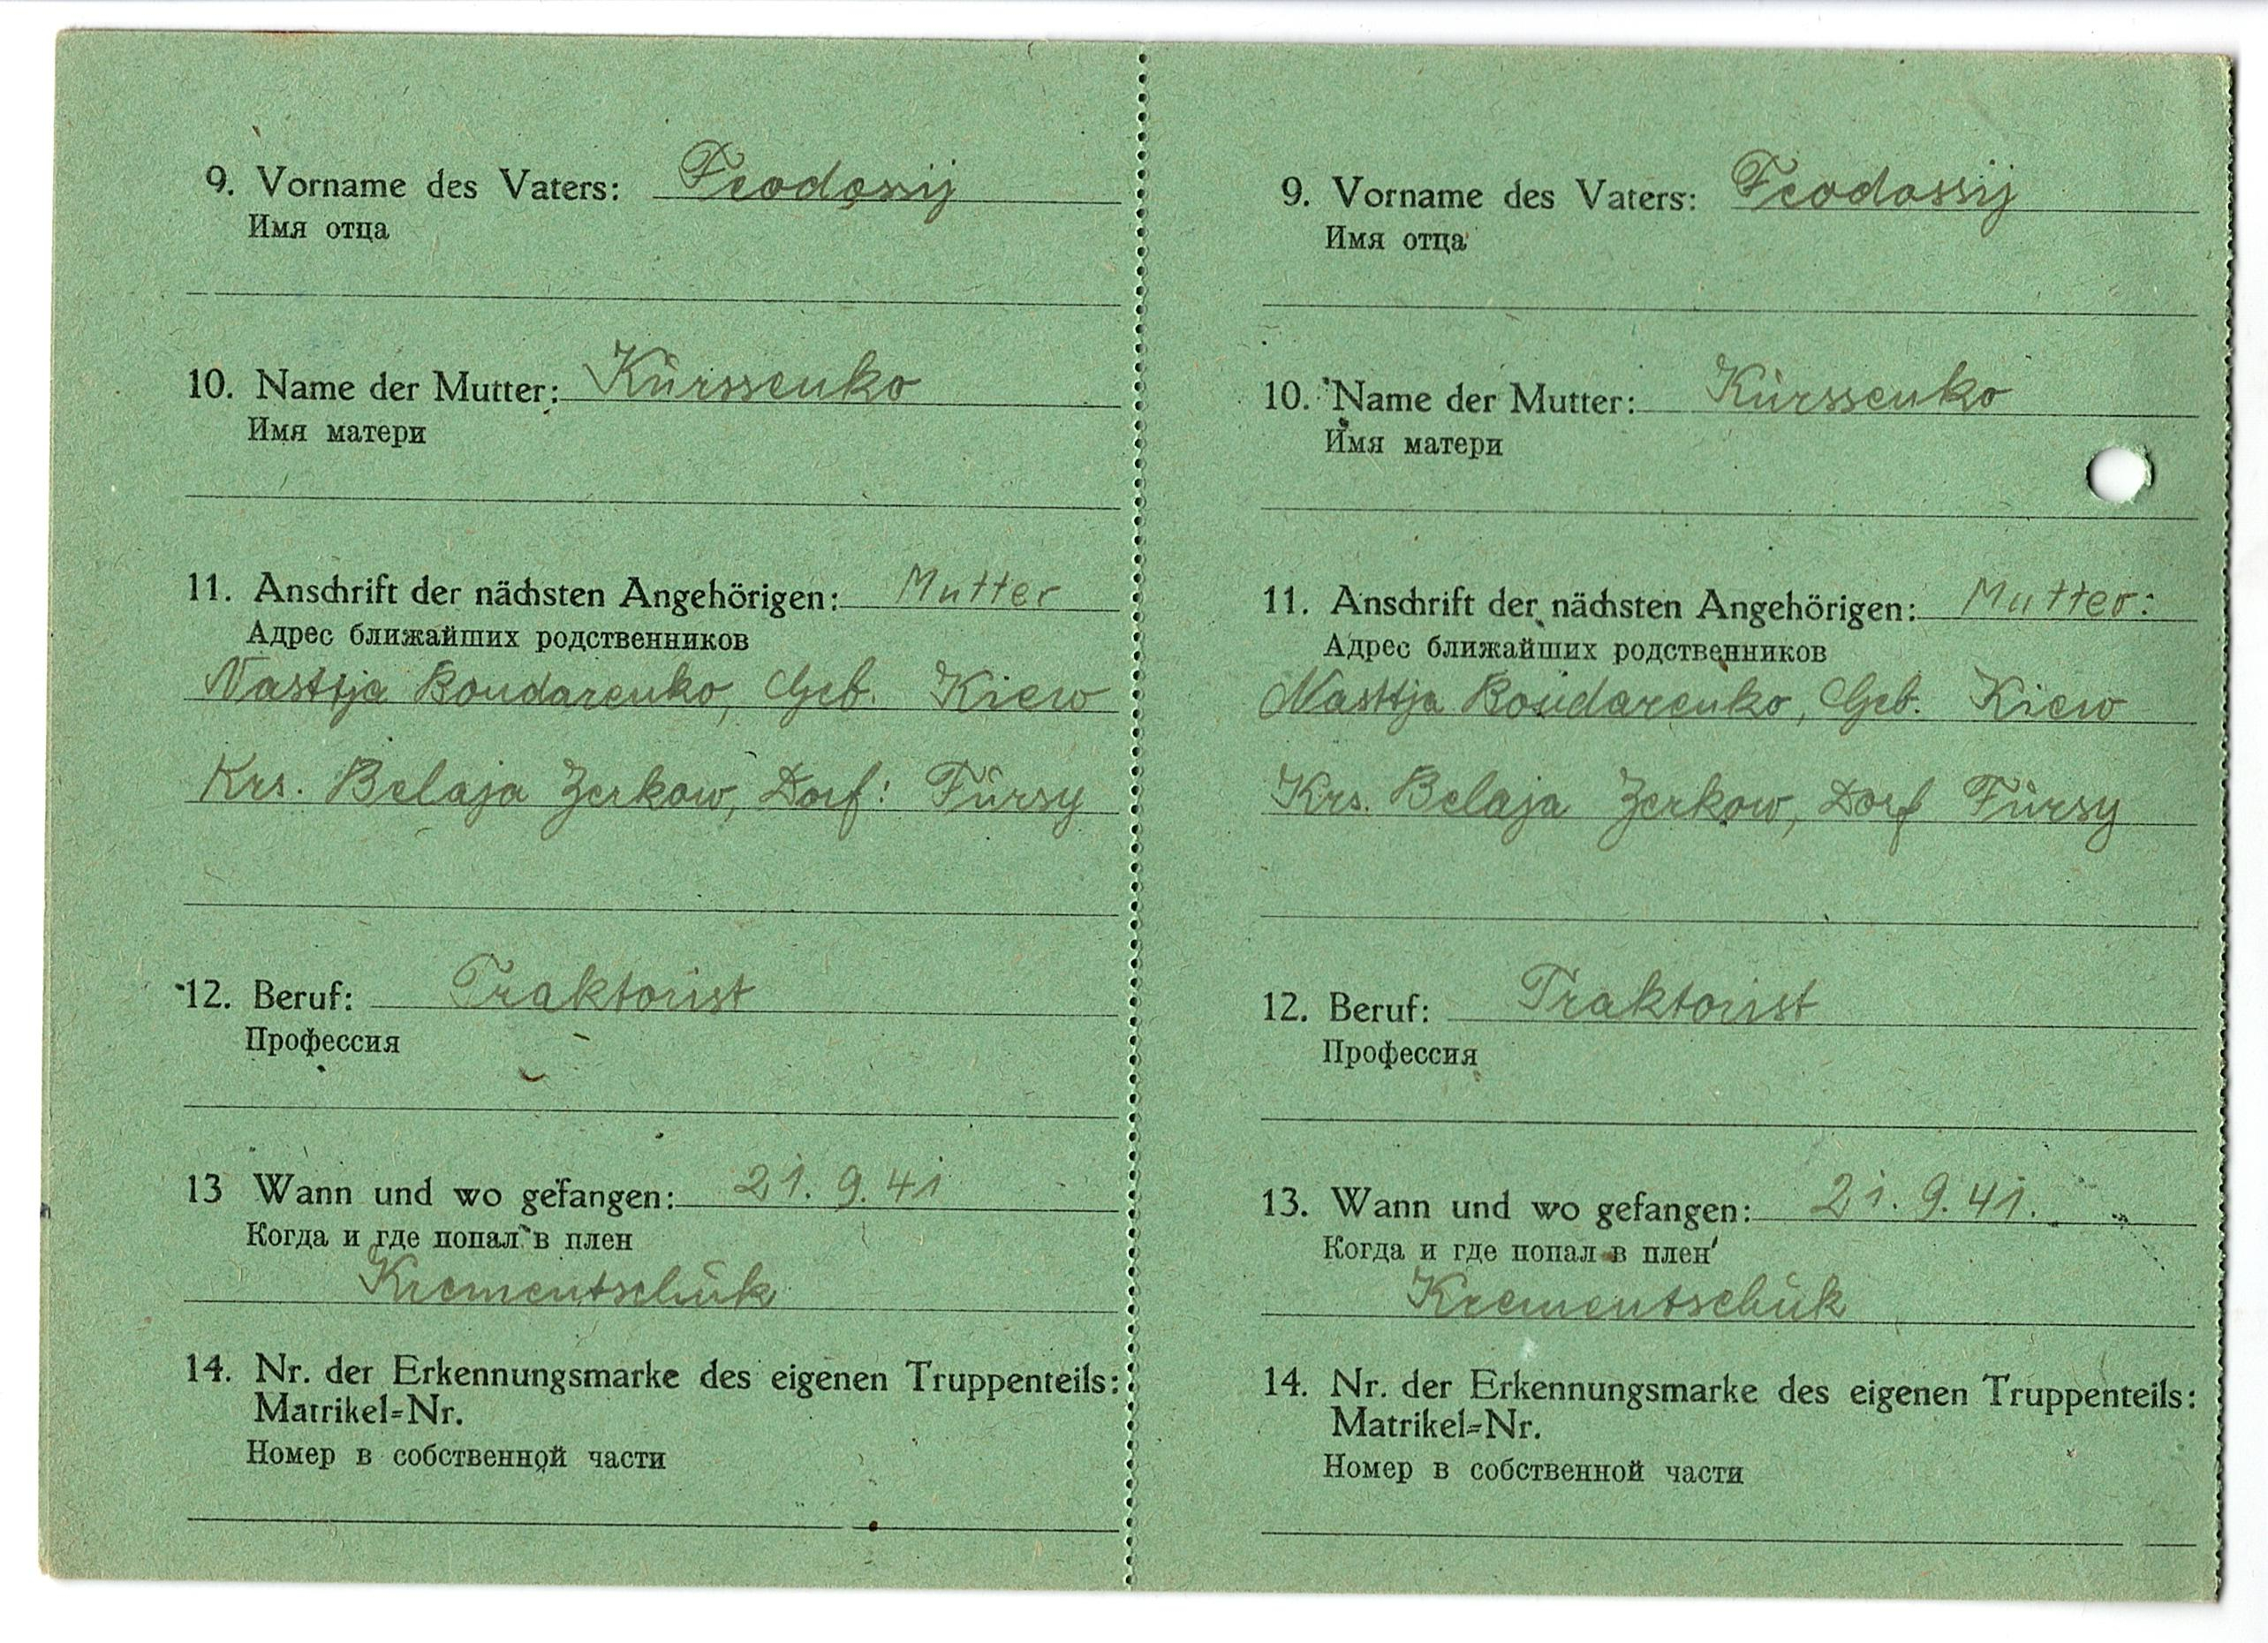 9. Vorname des Vaters: Feodossij
Имя отца
10. Name der Mutter: Kŭrssenko
Имя матери
11. Anschrift der nächsten Angehörigen: Mutter
Адрес ближайших родственников
Nastsja Bondarenko, Geb. Kiew
Krs. Belaja Zerkow, Dorf: Fŭrsy
12. Beruf: Traktorist
Профессия
13 Wann und wo gefangen: 21. 9. 41
Когда и где попал в плен
Krementschŭk
14. Nr. der Erkennungsmarke des eigenen Truppenteils:
Matrikel=Nr.
Номер в собственной части
9. Vorname des Vaters: Feodossij
Имя отца
10. Name der Mutter: Kŭrssenko
Имя матери
11. Anschrift der nächsten Angehörigen: Mutter:
Адрес ближайших родственников
Nastsja Bondarenko, Geb. Kiew
Krs. Belaja Zerkow, Dorf Fŭrsy
12. Beruf: Traktorist
Профессия
13. Wann und wo gefangen: 21. 9. 41.
Когда и где попал в плен
Krementschŭk
14. Nr. der Erkennungsmarke des eigenen Truppenteils:
Matrikel=Nr.
Номер в собственной части